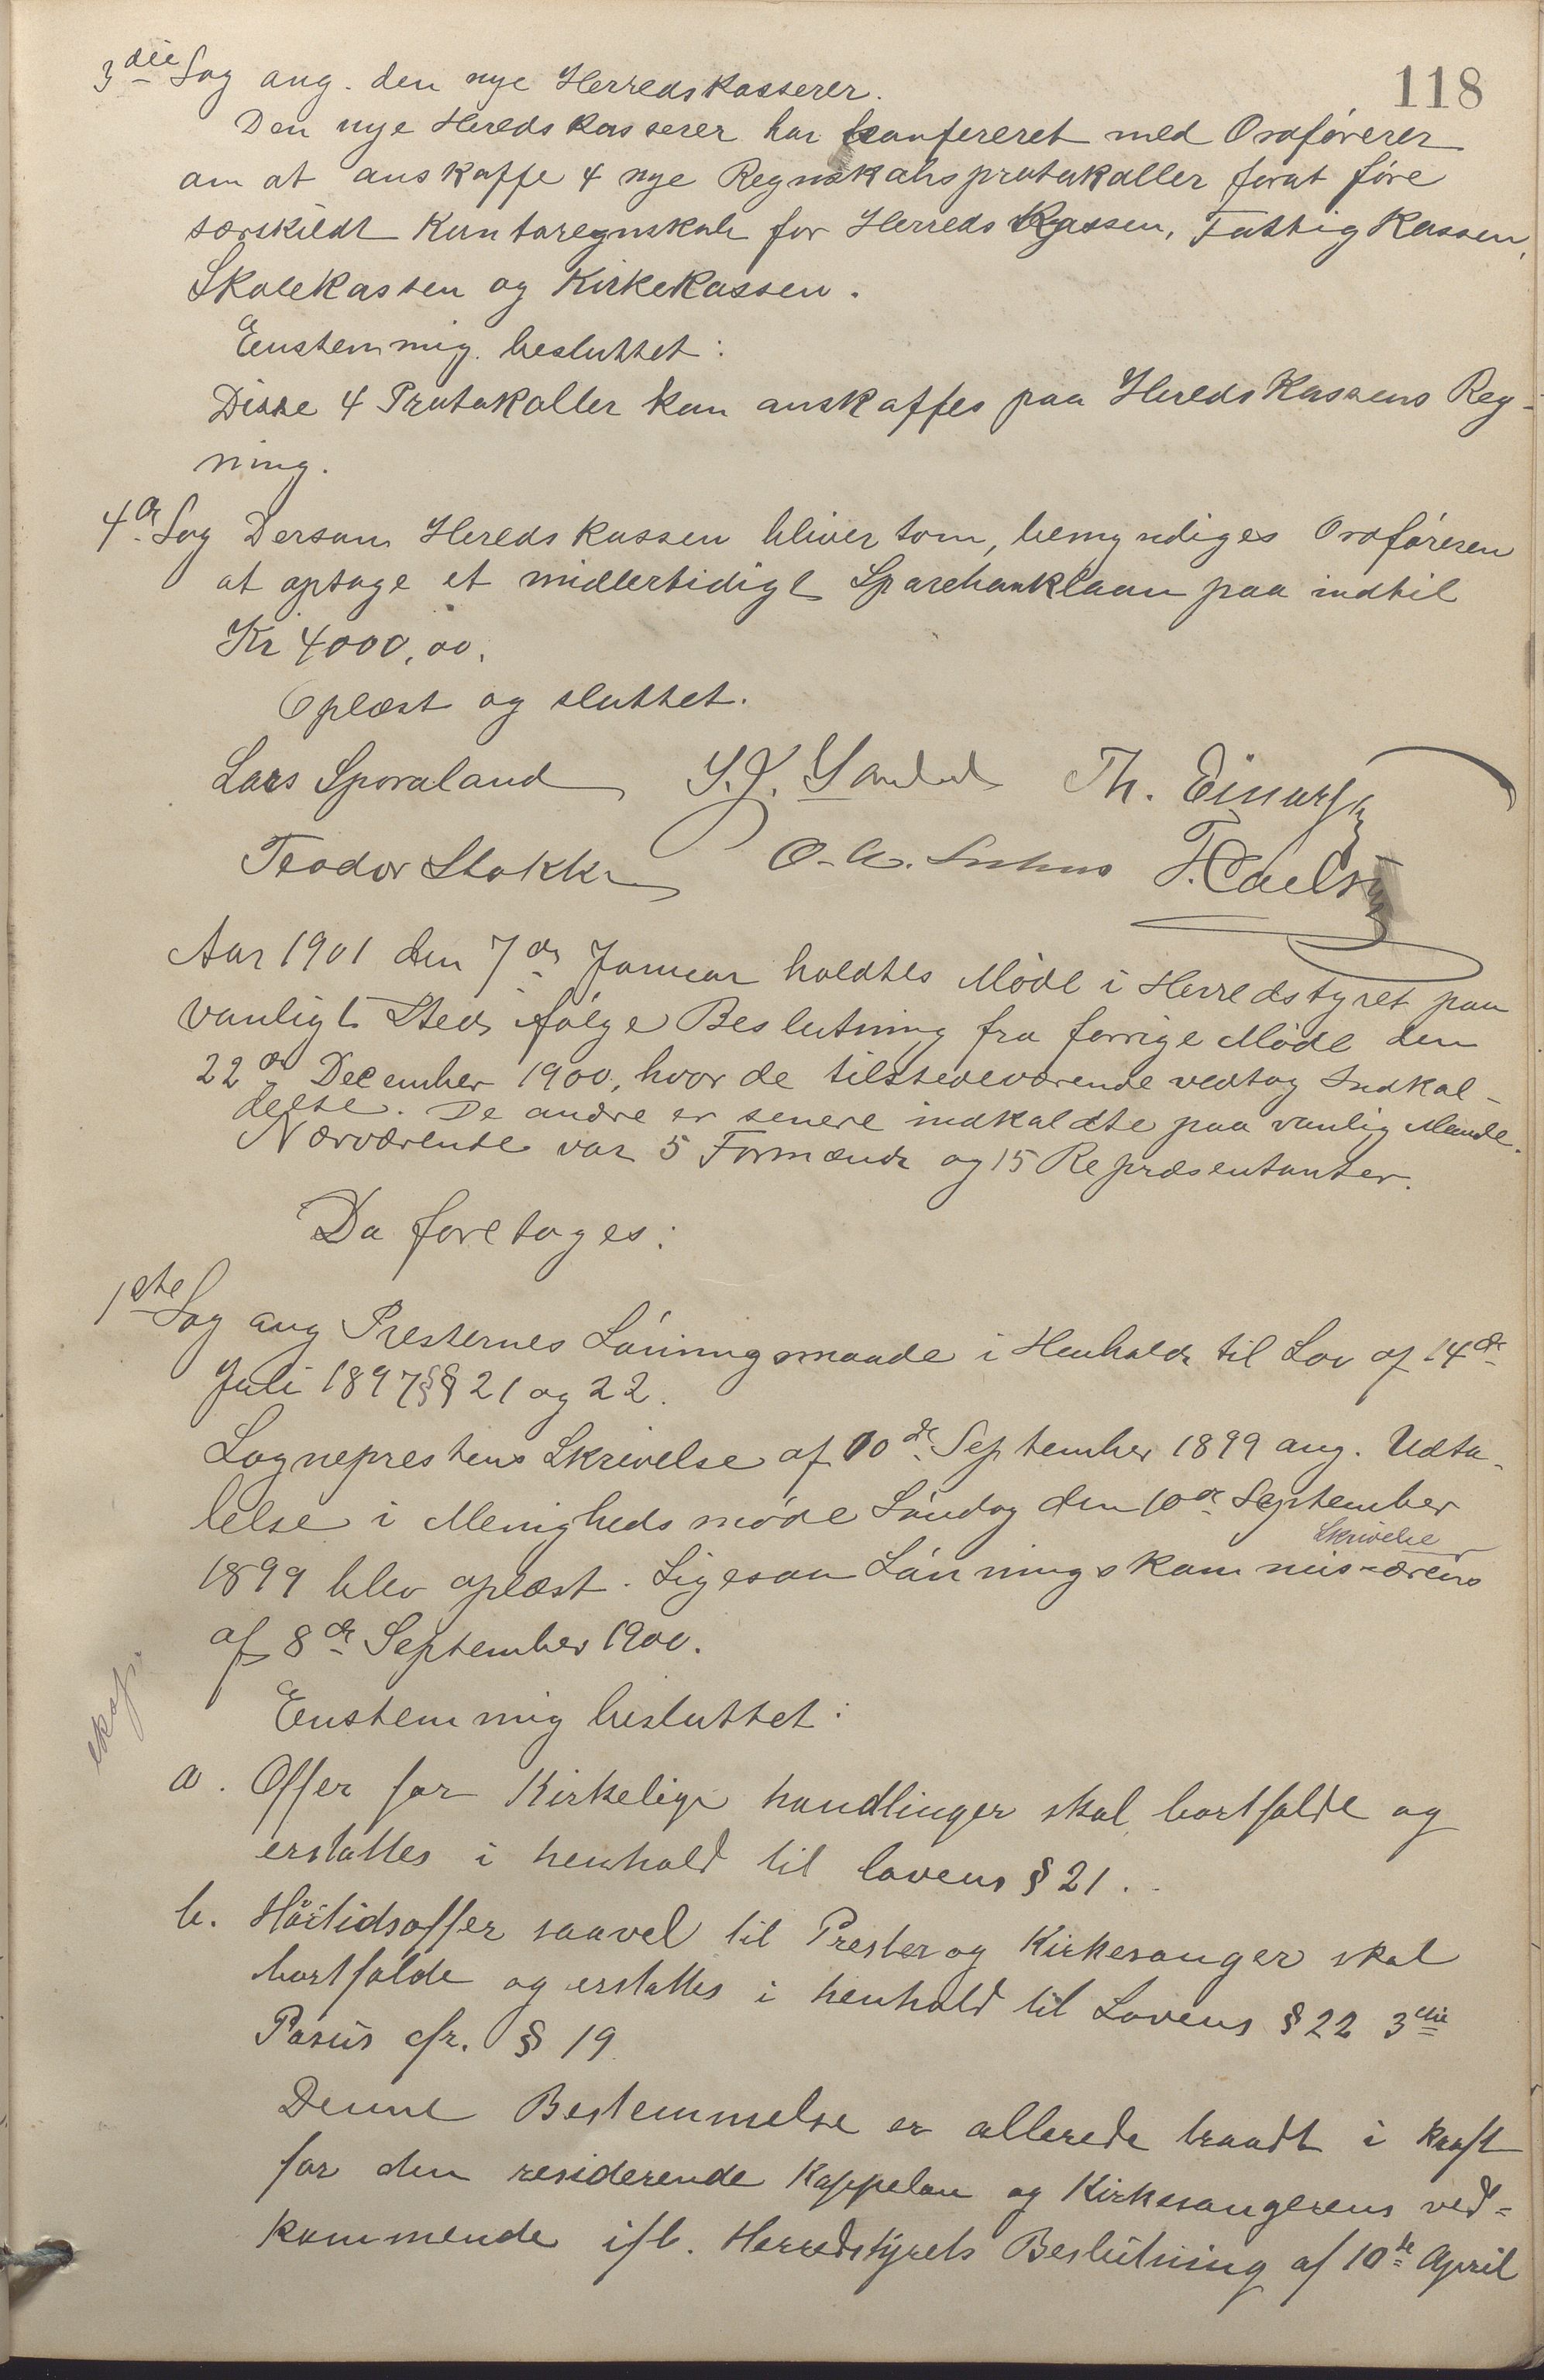 118
3die Sag ang. den nye Herredskasserer.
Den nye Heredskasserer har konfereret med Ordförerer
om at anskaffe 4 nye Regnskabsprotokoller forat före
særskildt Kontoregnskab for Herredskassen, Fattigkassen,
Skolekassen og Kirkekassen.
Eenstemmig besluttet:
Disse 4 Protokoller kan anskaffes paa Heredskassens Reg-
ning.
4de Sag Dersom Heredskassen bliver tom, bemyndiges Ordföreren
at optage et midlertidigt Sparebanklaan paa indtil
Kr 4000,00.
Oplæst og sluttet.
Lars Sporaland Th. Einarsen
Teodor Stokka
Aar 1901 den 7de Januar holdtes Möde i Herredstyret paa
vanligt Sted ifölge Beslutning fra forrige Möde den
22de December 1900, hvor de tilstedeværende vedtog Indkal-
delse. De andre er senere indkaldte paa vanlig Maade.
Nærværende var 5 Formænd og 15 Repræsentanter.
Da foretoges:
1ste Sag ang Presternes Lönningsmaade i Henhold til Lov af 14de
Juli 1897 §§ 21 og 22.
Sogneprestens Skrivelse af 10de September 1899 ang. Udta-
lelse i Menighedsmöde Söndag den 10de September
Skrivelse
1899 blev oplæst. Ligesaa Lönningskommissærens
af 8de September 1900.
Eenstemmig besluttet:
eksp.
a. Offer for Kirkelige handlinger skal bortfalde og
erstattes i henhold til lovens § 21.
b. Höitidsoffer saavel til Prester og Kirkesanger skal
bortfalde og erstattes i henhold til Lovens § 22 3die
Pasus cfr. § 19
Denne Bestemmelse er allerede traadt i kraft
for den residerende Kappelan og Kirkesangerens ved=
kommende ifl. Herredstyrets Beslutning af 10de April